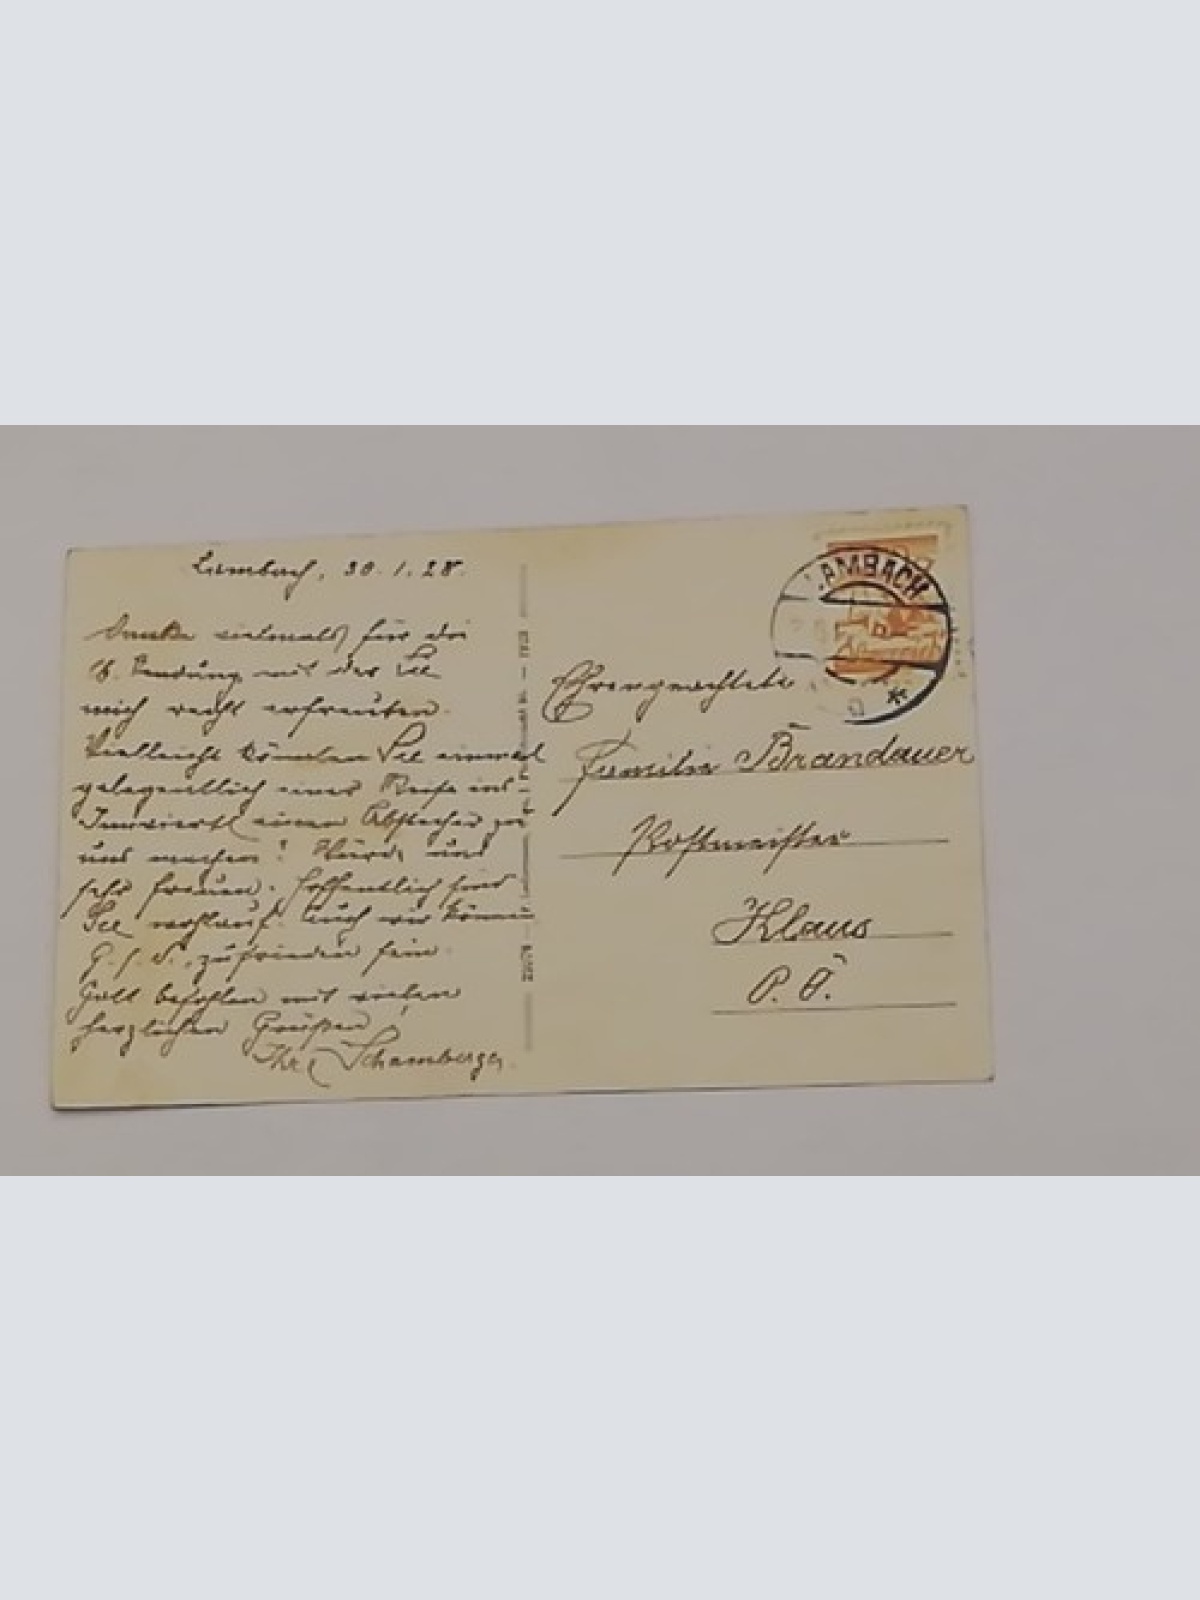 Lambach, 30.1.28.
Danke vielmals für die
lb. Sendung mit der Sie
mich recht erfreuten.
Vielleicht könnten Sie einmal
gelegentlich einer Reise ins
Innviertl einen Abstecher zu
uns machen! Würde uns
sehr freuen. Hoffentlich sind
Sie wohlauf. Auch wir können
G. s. D. zufrieden sein.
Gott befohlen mit vielen
herzlichen Grüßen
Ihr Schamberger
LAMBACH
Österreich
Ehrengeachtete
Familie Brandauer
Postmeister
Klaus
O. Ö.